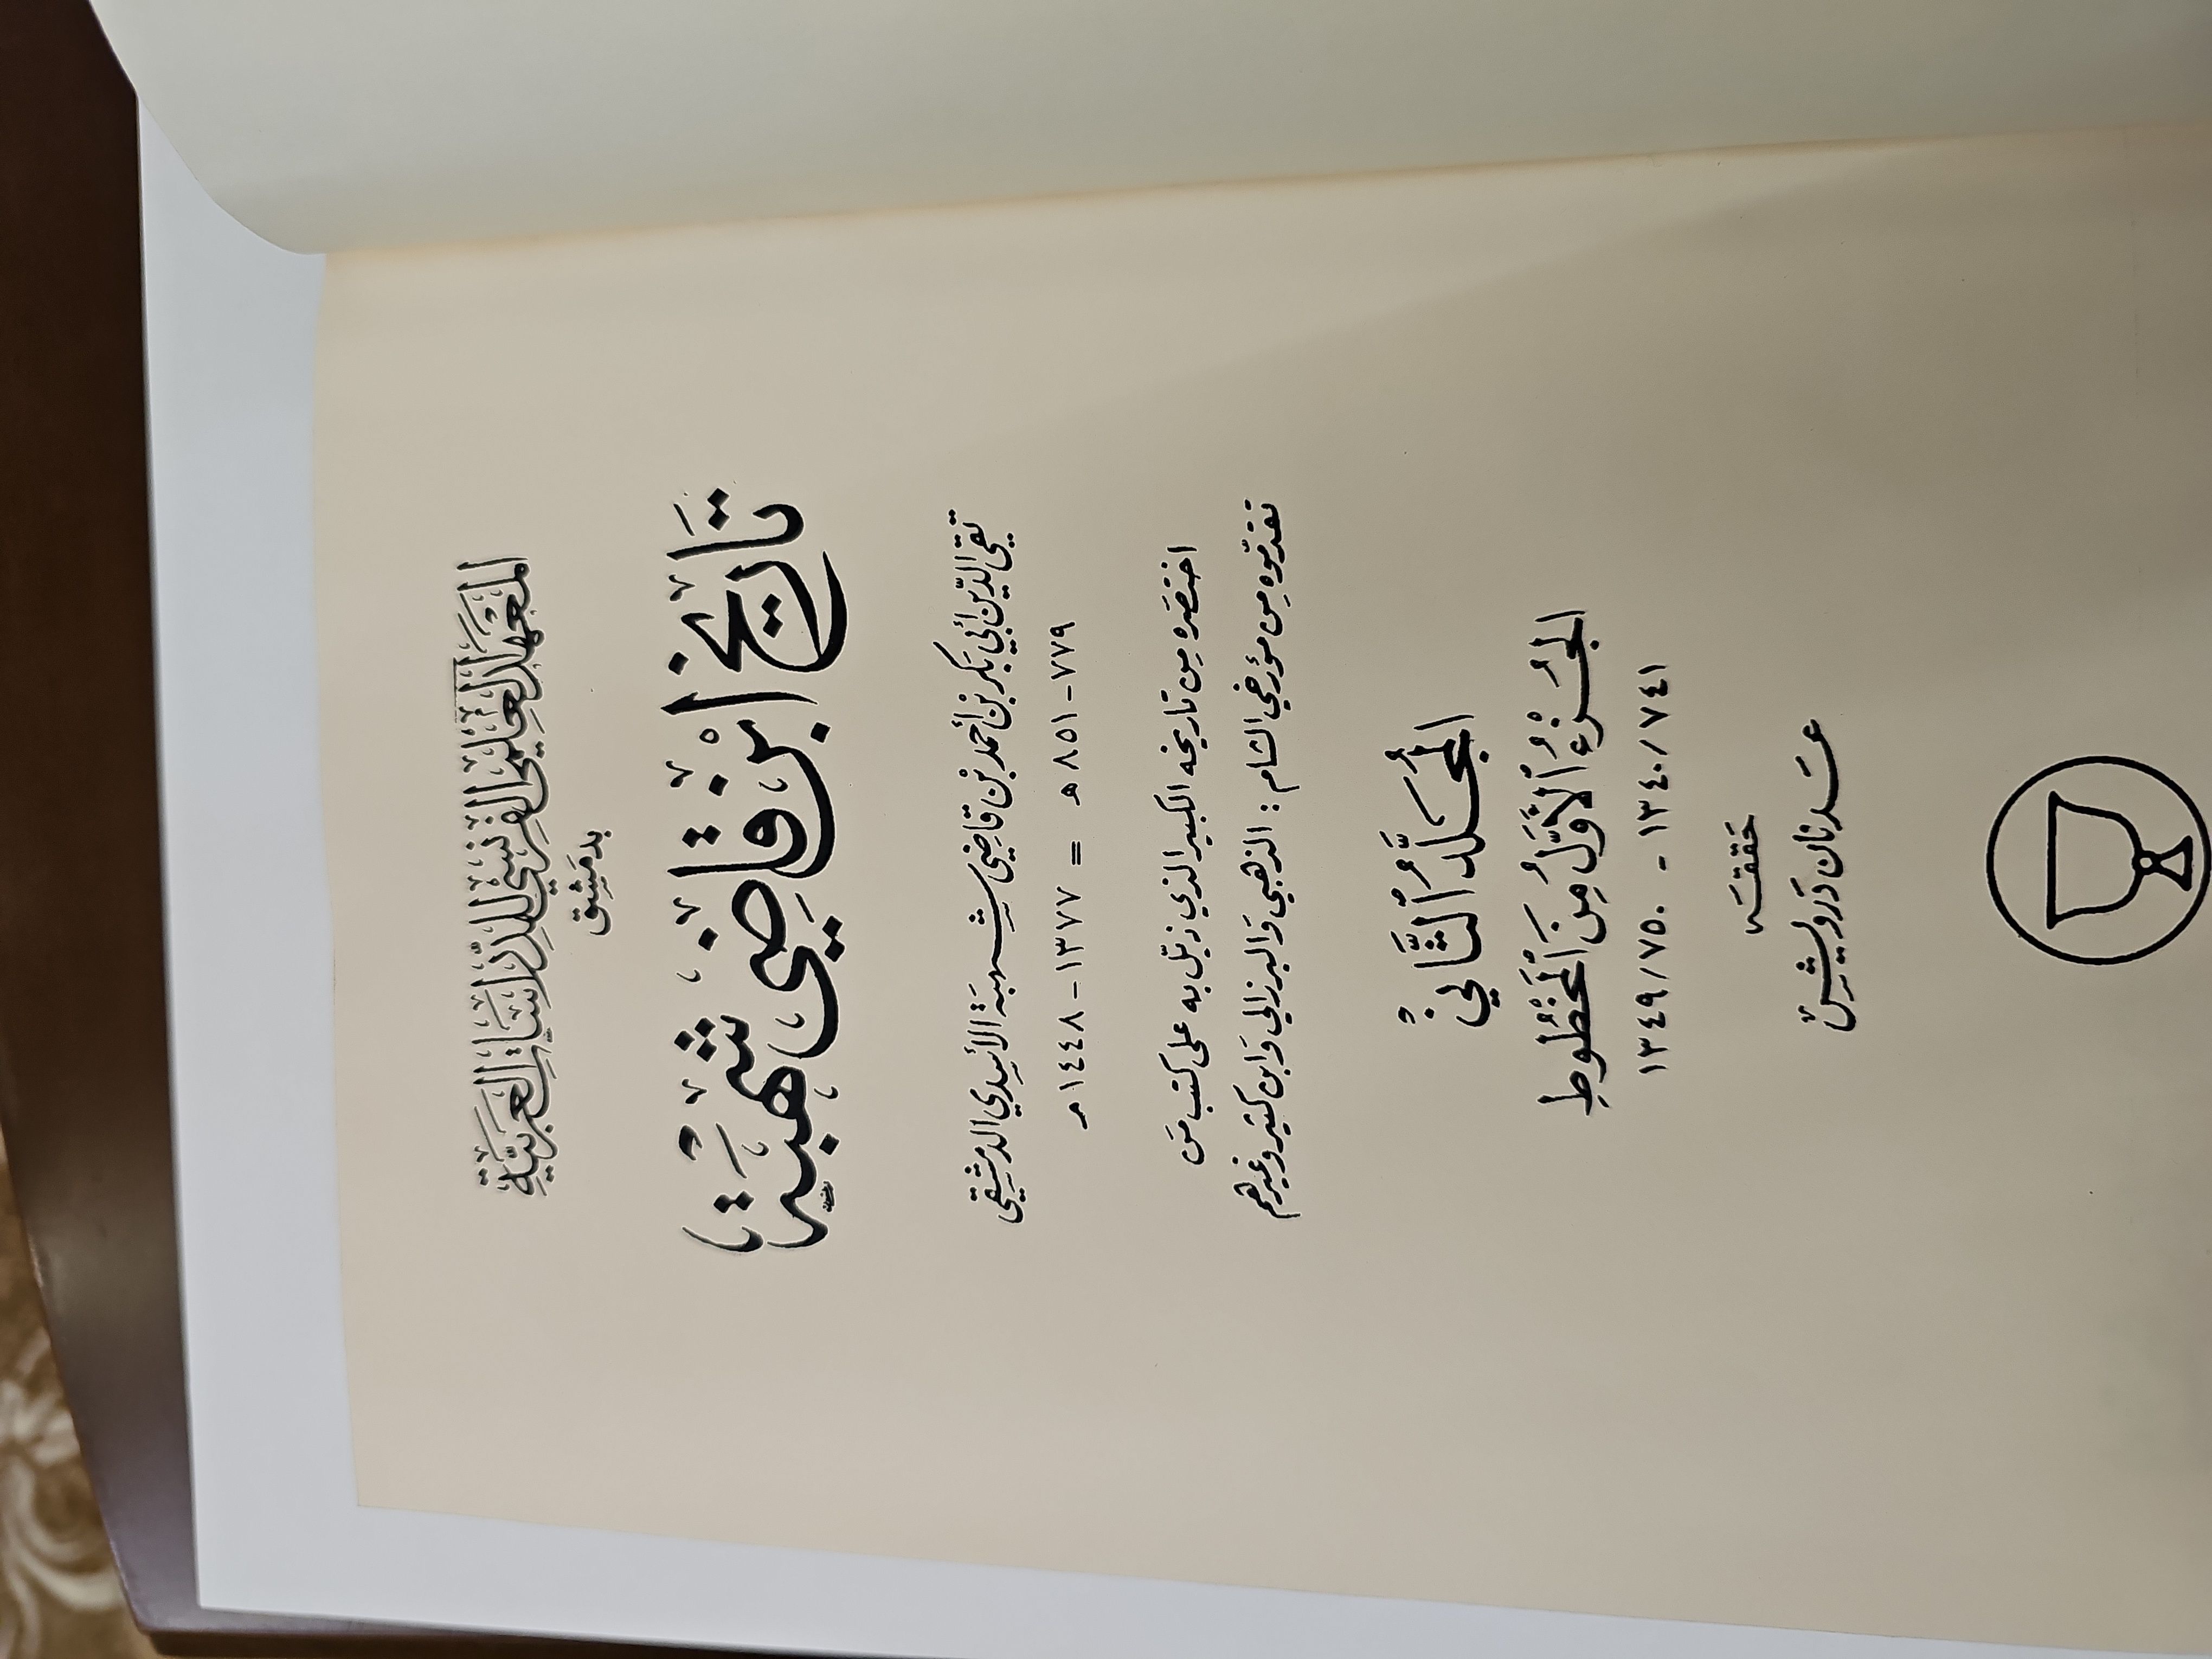 المَعهَد العِلمي الفَرَنسي للدِّرَاسَات العَرَبيَّة
بدمَشِق
تَاريخ ابْن قَاضِي شُهْبَة
تقي الدّين أبي بَكر بْن أحمَد بْن قَاضِي شُهبَة الأسَدي الدمَشقي
٧٧٩-٨٥١ هـ = ١٣٧٧-١٤٤٨ م
اختصَره مِن تاريخه الكبير الذي ذيّل به على كتب مَن
تقدّموه مِن مؤرخي الشام : الذهبي وَالبرزالي وَابن كثير وغيرهم
المُجَلَّدُ الثَّانِي
الجُزْءُ الأَوَّلُ مِنَ المَخْطُوطِ
٧٤١/١٣٤٠ - ٧٥٠/١٣٤٩
حَقّقَه
عَدنان دَرويش